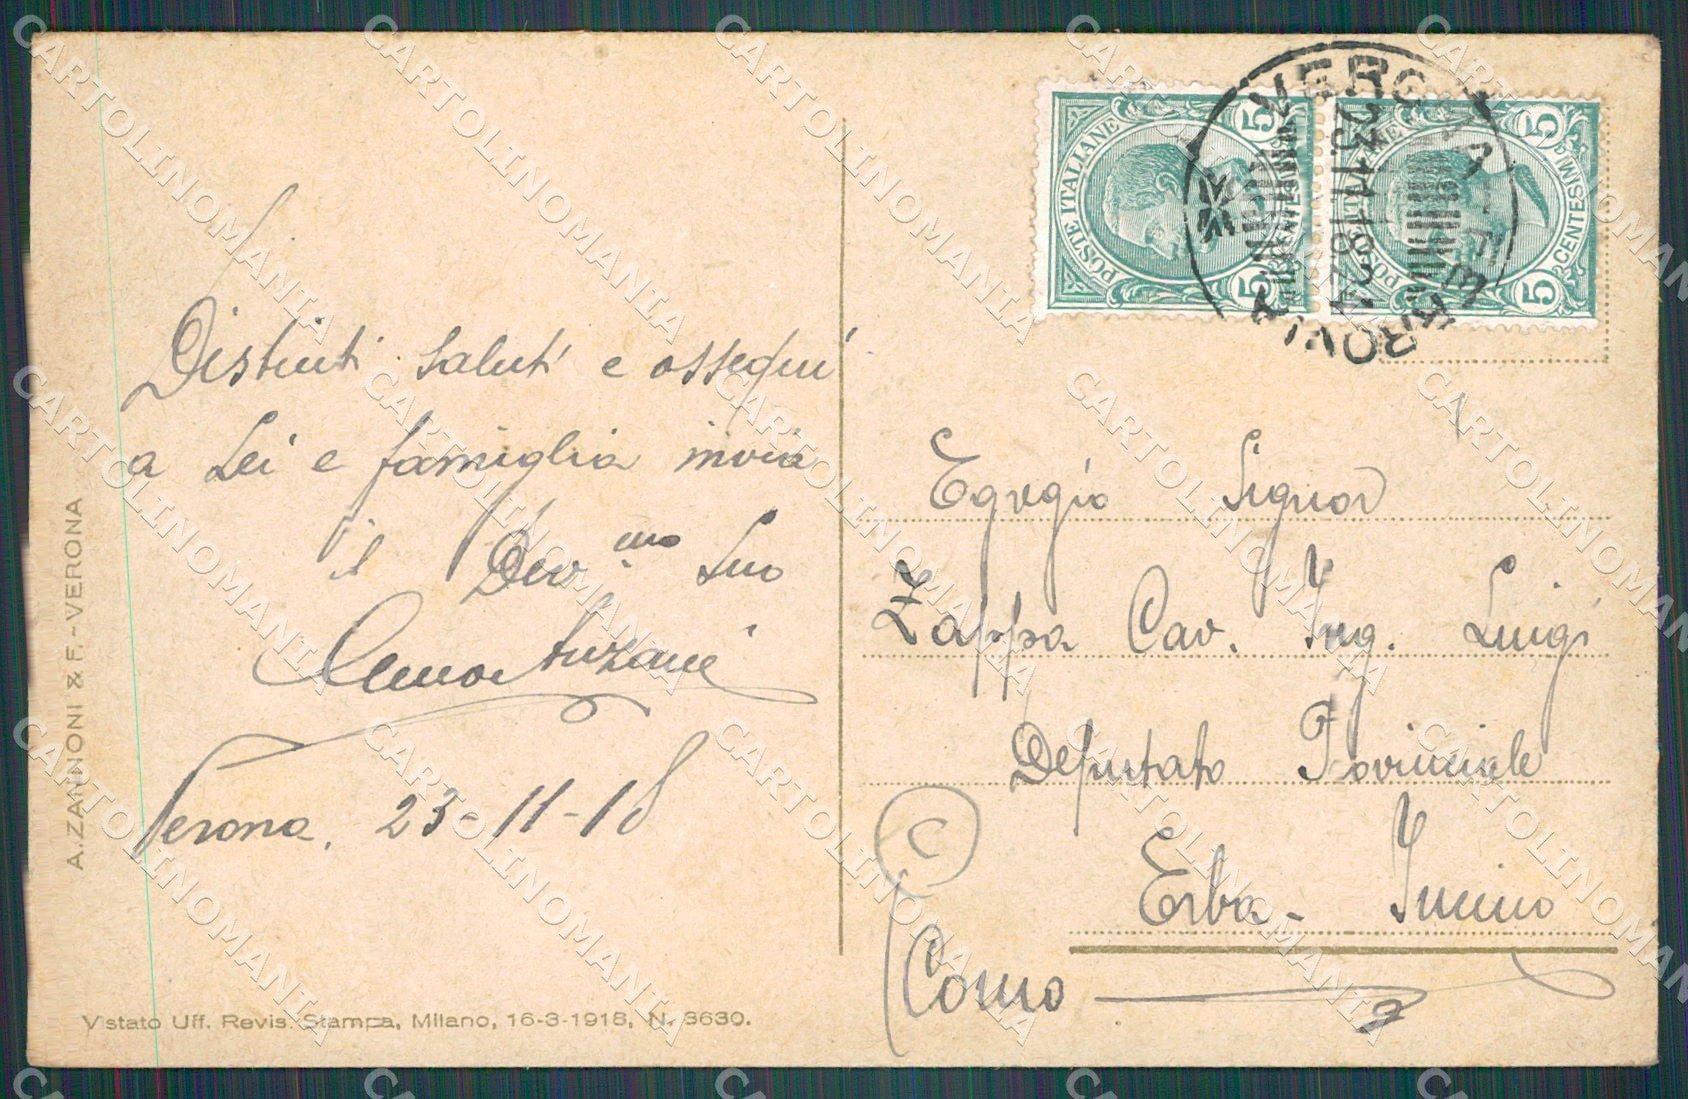 Distinti saluti e ossequi
a Lei e famiglia invia
il Dev.mo Suo
Verona, 23-11-18
A. ZANNONI & F. - VERONA
Vistato Uff. Revis. Stampa, Milano, 16-3-1918, N. 3630.
POSTE ITALIANE
5 CENTESIMI 5
POSTE ITALIANE
5 CENTESIMI 5
VERONA FERROVIA
23.11.18.21
Egregio Signor
Zappa Cav. Ing. Luigi
Deputato Provinciale
Erba - Incino
C
(Como
CARTOLINOMANIA